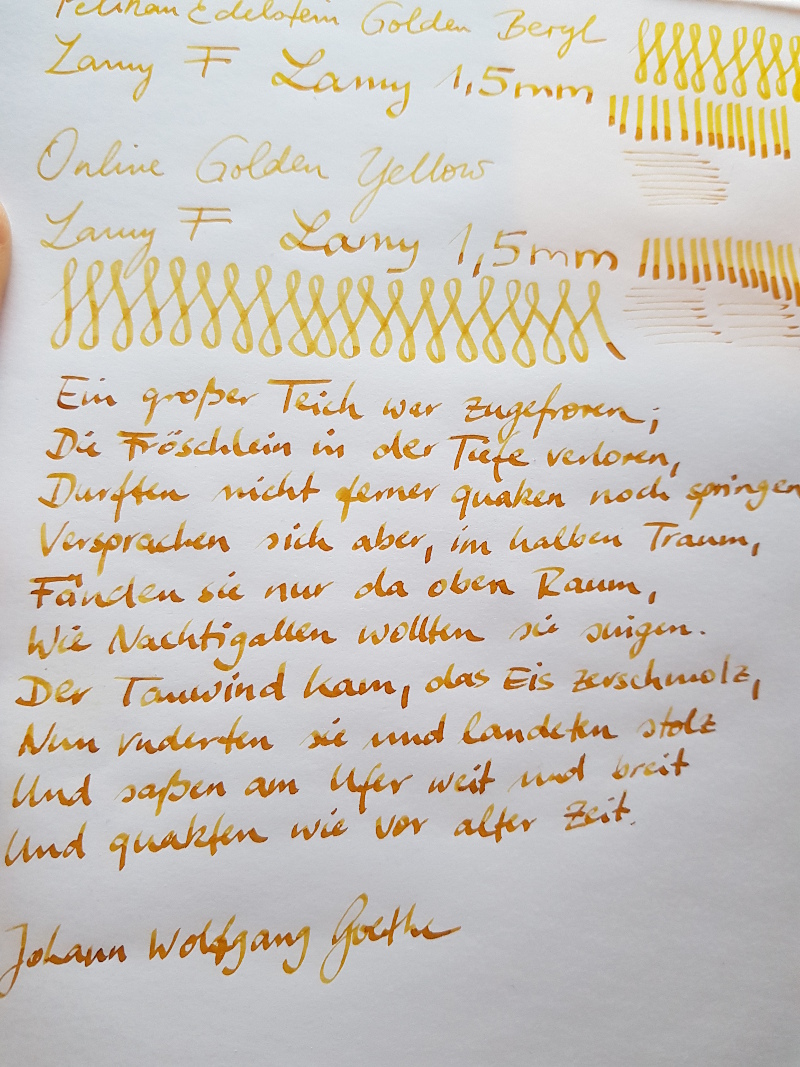 Pelikan Edelstein Golden Beryl
Lamy F Lamy 1,5mm
Online Golden Yellow
Lamy F Lamy 1,5mm
Ein großer Teich war zugefroren;
Die Fröschlein in der Tiefe verloren,
Durften nicht ferner quaken noch springen
Versprachen sich aber, im halben Traum,
Fänden sie nur da oben Raum,
Wie Nachtigallen wollten sie singen.
Der Tauwind kam, das Eis zerschmolz,
Nun ruderten sie und landeten stolz
Und saßen am Ufer weit und breit
Und quakten wie vor alter Zeit.
Johann Wolfgang Goethe